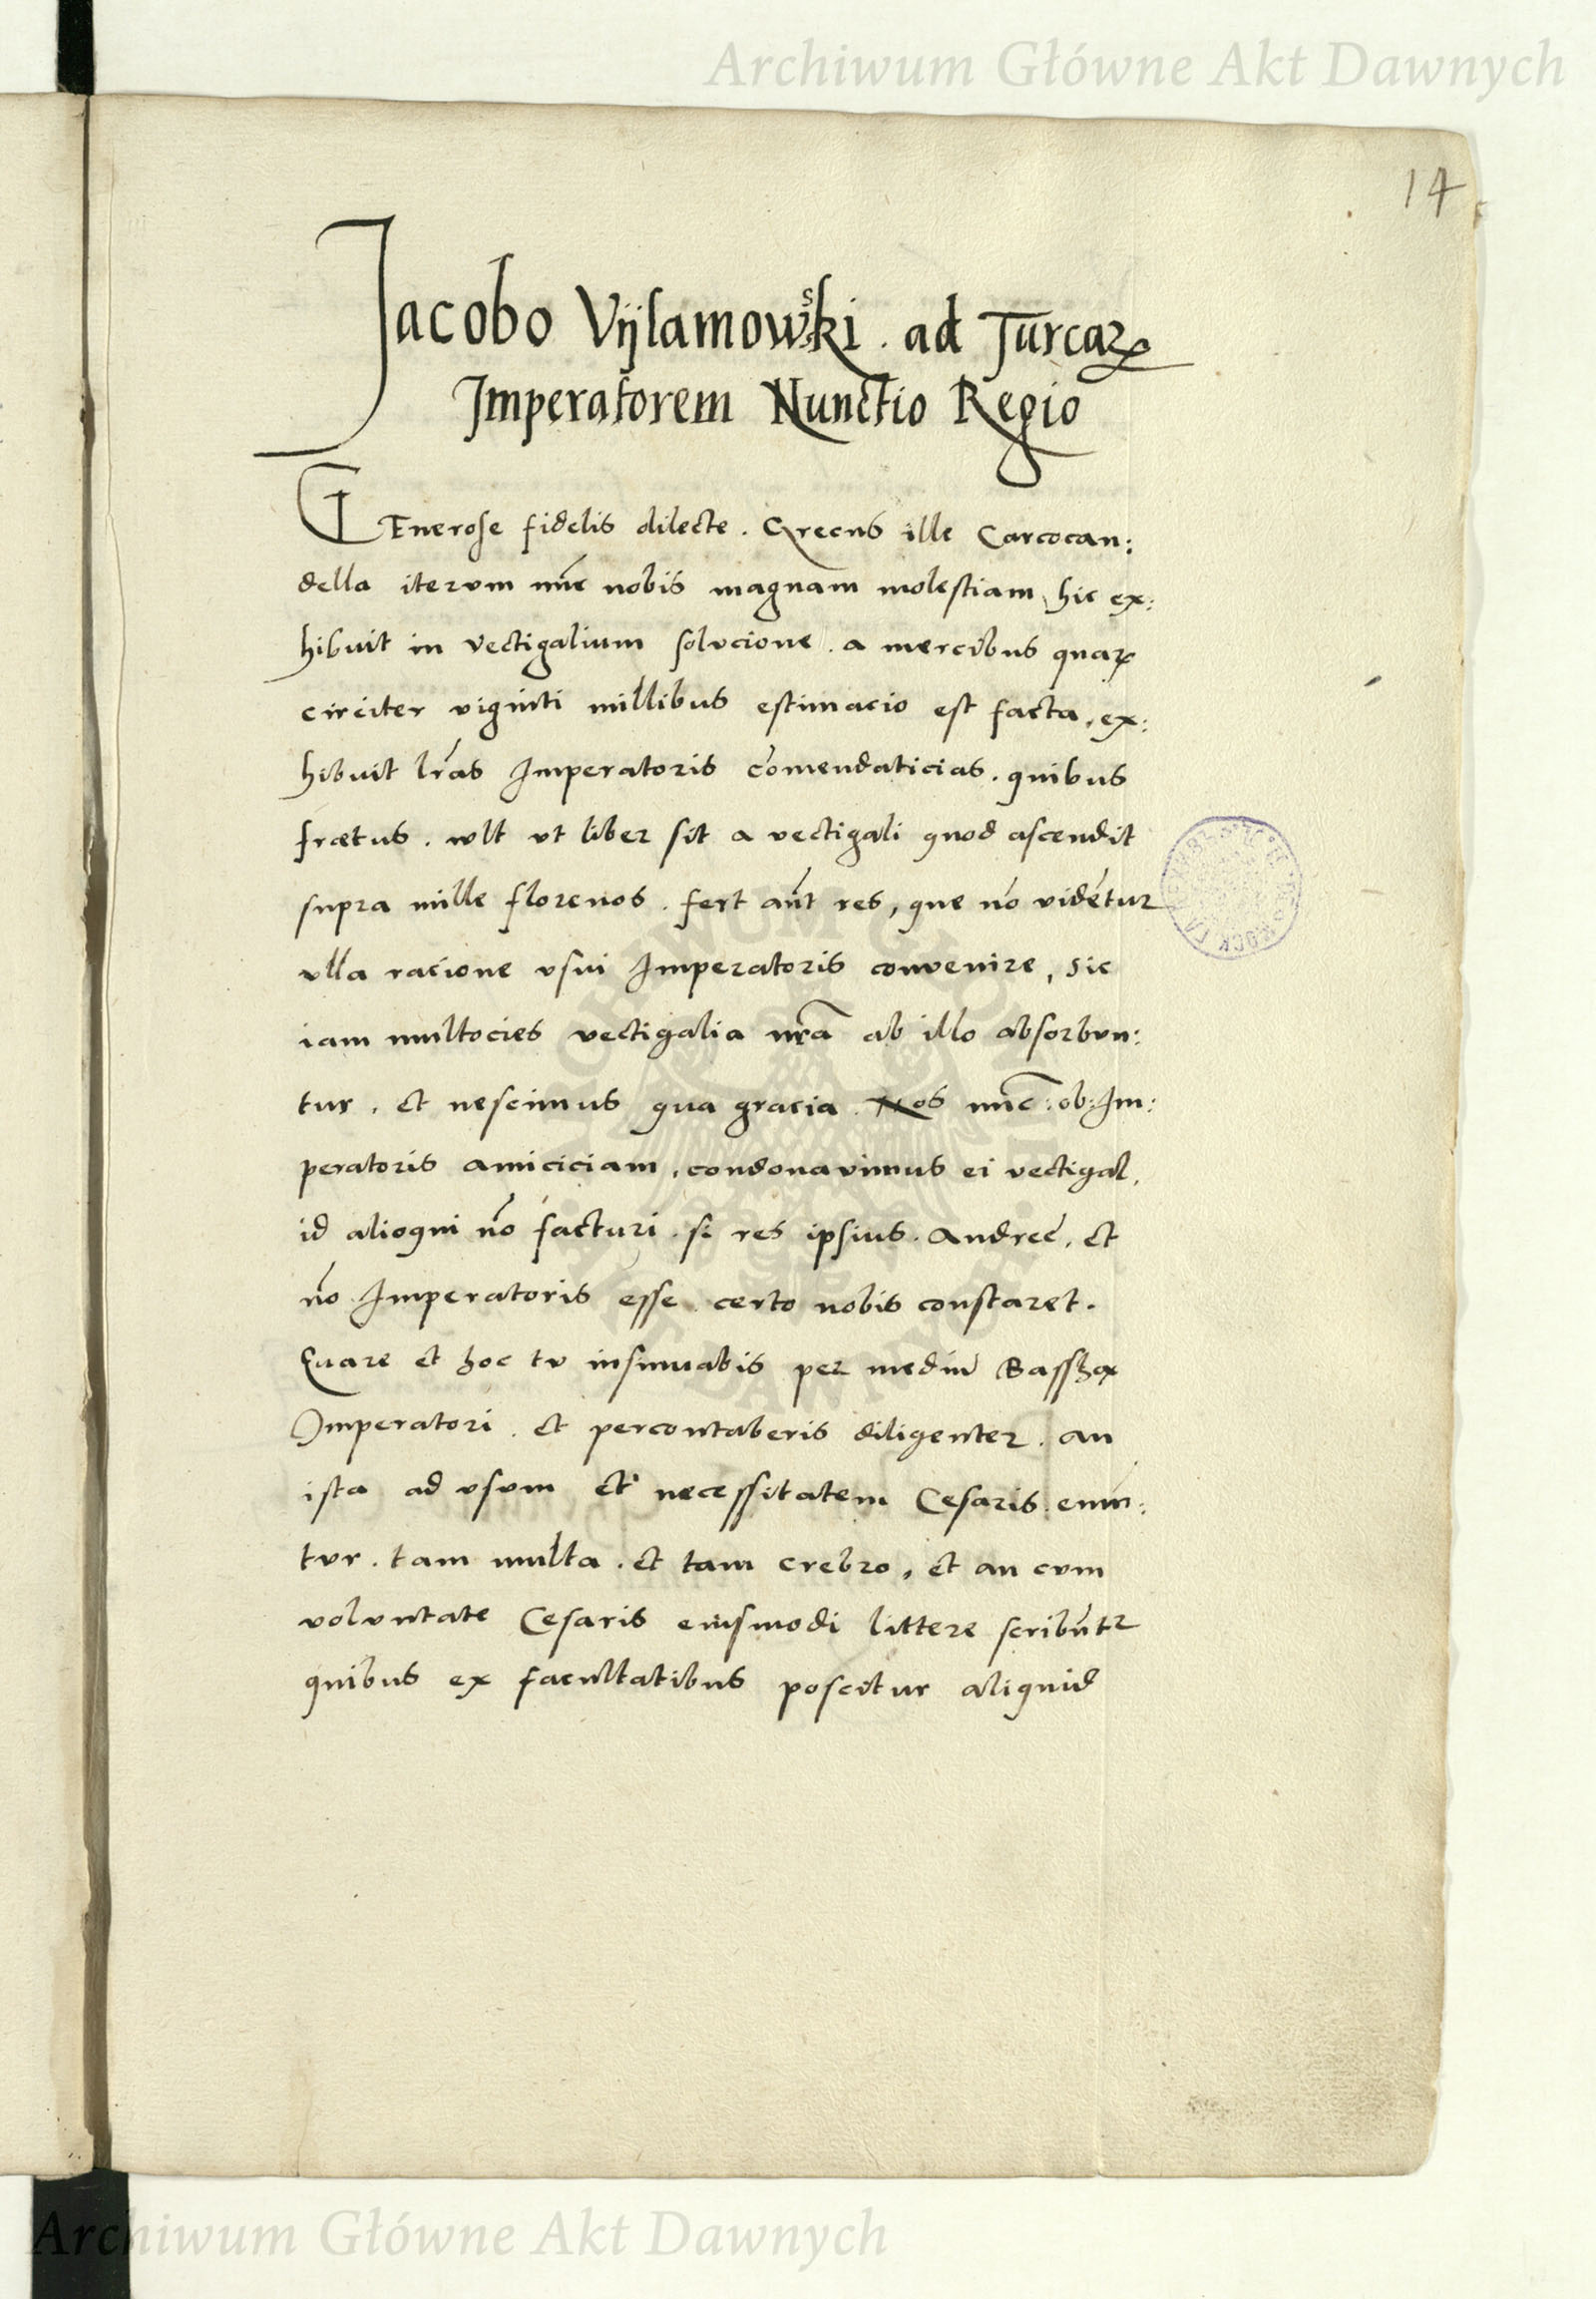 Archiwum Główne Akt Dawnych
14
Jacobo Vijlamowski . ad Turcaꝝ
Imperatorem Nunctio Regio
GEnerose fidelis dilecte . Grecus ille Carcocan:
della iterum nūc nobis magnam molestiam hic ex:
hibuit in vectigalium solucione . a mercibus quaꝝ
circiter viginti millibus estimacio est facta, ex:
hibuit lr̄as Imperatoris cōmendaticias . quibus
frætus . wlt vt liber sit a vectigali quod ascendit
supra mille florenos . fert aūt res, que nō vidētur
vlla racione vsui Imperatoris convenire, sic
iam multocies vectigalia nr̄a ab illo absorbun:
tur . et nescimus qua gracia . Nos nūc : ob : Im:
peratoris amiciciam, condonavimus ei vectigal,
id alioqui nō facturi . si res ipsius . Andreę . et
nō Imperatoris esse . certo nobis constaret .
Quare et hoc tu insinuabis per mediū
Imperatori . et percontaberis diligenter . an
ista ad vsum et necessitatem Cesaris emūn:
tur . tam multa . et tam crebro, et an cum
voluntate Cesaris eiusmodi littere scribūtr
quibus ex facultatibus poscitur aliquid
Archiwum Główne Akt Dawnych